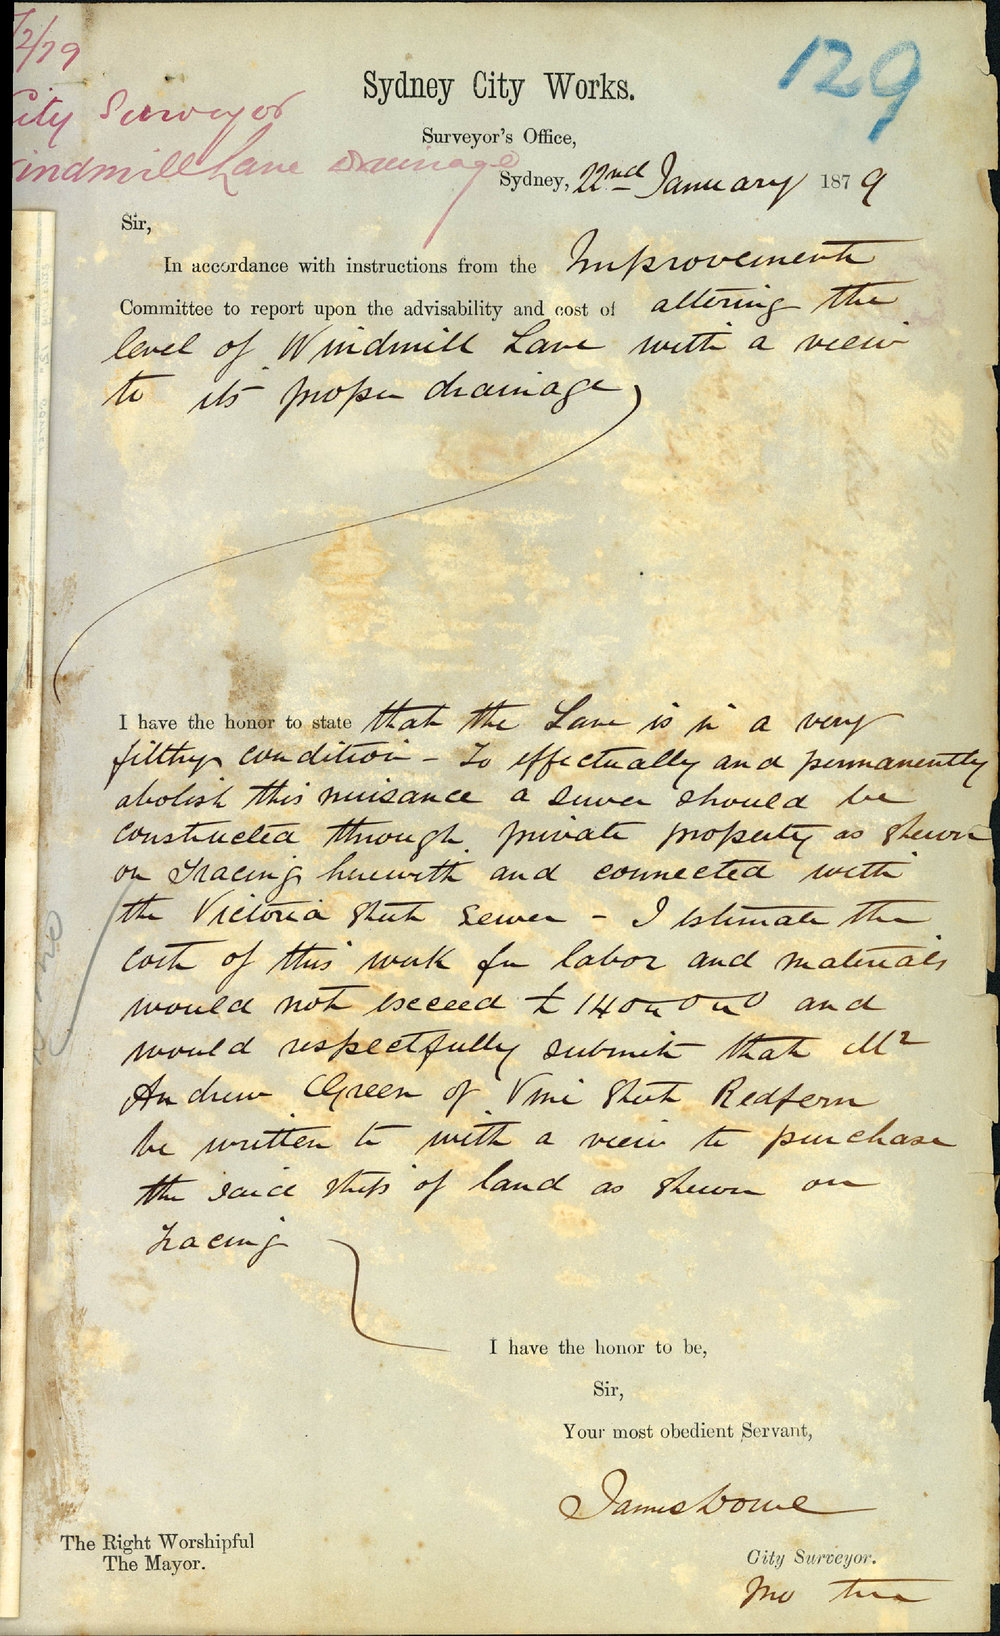 2/79
129
City Surveyor
Windmill Lane Drainage
Sydney City Works.
Surveyor's Office,
Sydney, 22nd January 1879
Sir,
In accordance with instructions from the Improvement
Committee to report upon the advisability and cost of altering the
level of Windmill Lane with a view
to its proper drainage
I have the honor to state that the Lane is in a very
filthy condition - To effectually and permanently
abolish this nuisance a sewer should be
constructed through private property as shewn
on Tracing herewith and connected with
the Victoria Street Sewer - I estimate the
cost of this work for labor and materials
would not exceed £140 " 0 " 0 and
would respectfully submit that Mr
Andrew Green of Vine Street Redfern
be written to with a view to purchase
the said strip of land as shewn on
tracing
I have the honor to be,
Sir,
Your most obedient Servant,
The Right Worshipful
The Mayor.
City Surveyor.